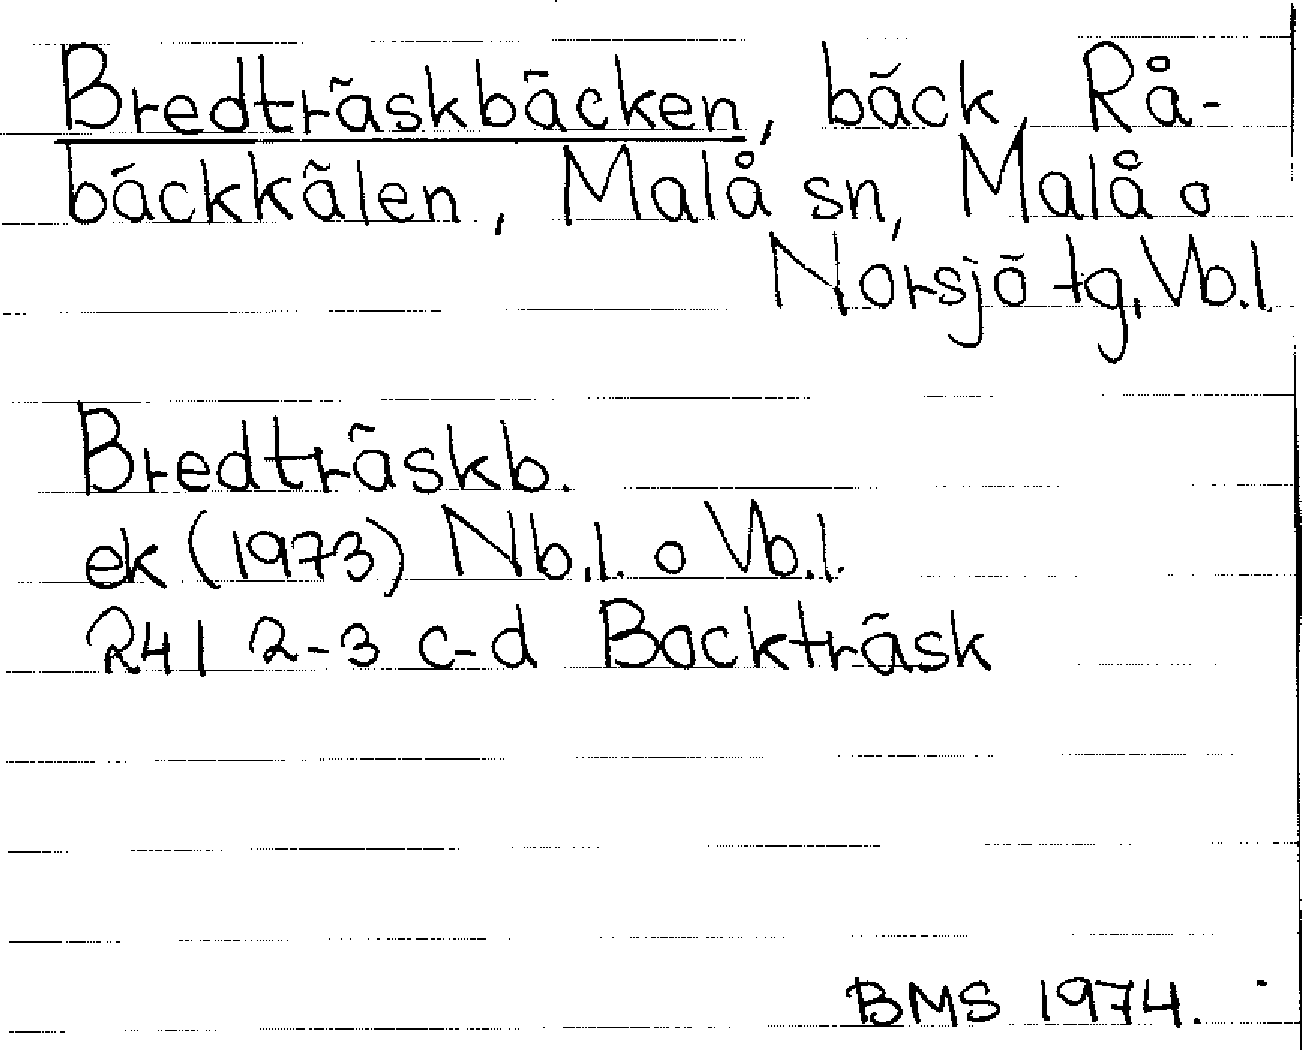 Bredträskbäcken, bäck, Rå-
bäckkälen, Malå sn, Malå o
Norsjö tg, Vb.l.
Bredträskb.
ek (1973) Nb.l. o Vb.l.
24I 2-3 c-d Backträsk
BMS 1974.